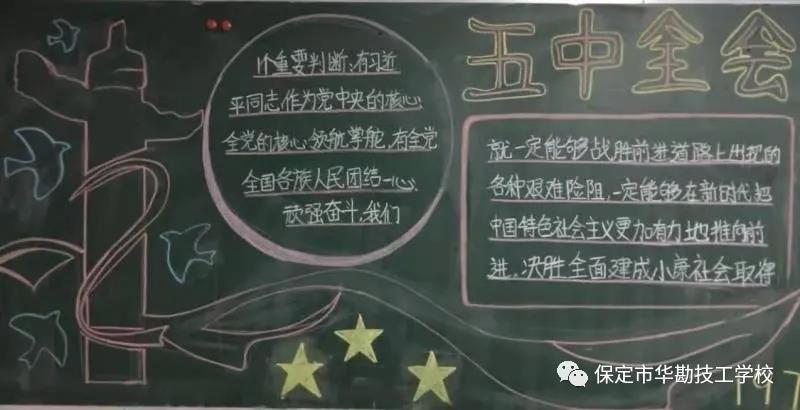 五中全会
1个重要判断:有习近
平同志作为党中央的核心
全党的核心领航掌舵,有全党
全国各族人民团结一心,
顽强奋斗,我们
就一定能够战胜前进道路上出现的
各种艰难险阻,一定能够在新时代把
中国特色社会主义更加有力地推向前
进。决胜全面建成小康社会取得
保定市华勘技工学校
197